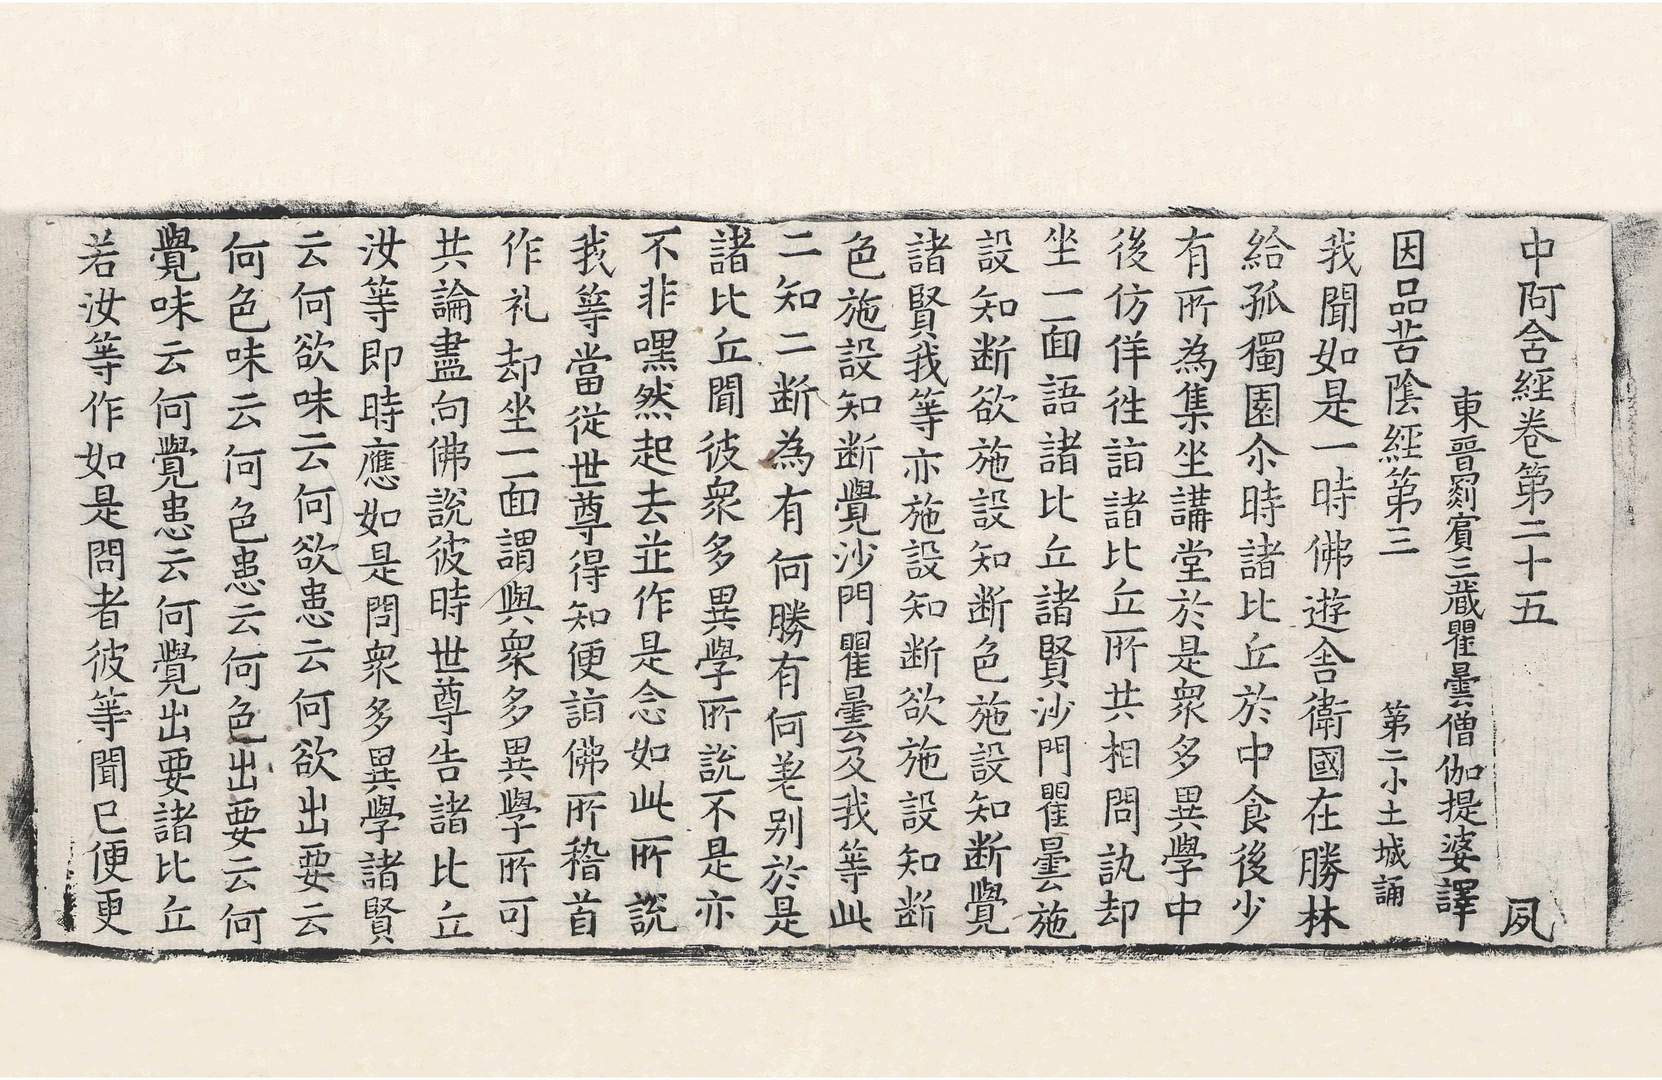 中阿含經卷第二十五　夙
東晉罽賓三藏瞿曇僧伽提婆譯
因品苦陰經第三　第二小土城誦
我聞如是一時佛遊舍衛國在勝林
給孤獨園尒時諸比丘於中食後少
有所為集坐講堂於是衆多異學中
後仿佯徃詣諸比丘所共相問訊却
坐一面語諸比丘諸賢沙門瞿曇施
設知断欲施設知断色施設知断覺
諸賢我等亦施設知断欲施設知断
色施設知断覺沙門瞿曇及我等此
二知二断為有何勝有何差別於是
諸比丘聞彼衆多異學所說不是亦
不非嘿然起去並作是念如此所說
我等當從世尊得知便詣佛所稽首
作礼却坐一面謂與衆多異學所可
共論盡向佛說彼時世尊告諸比丘
汝等即時應如是問衆多異學諸賢
云何欲味云何欲患云何欲出要云
何色味云何色患云何色出要云何
覺味云何覺患云何覺出要諸比丘
若汝等作如是問者彼等聞已便更